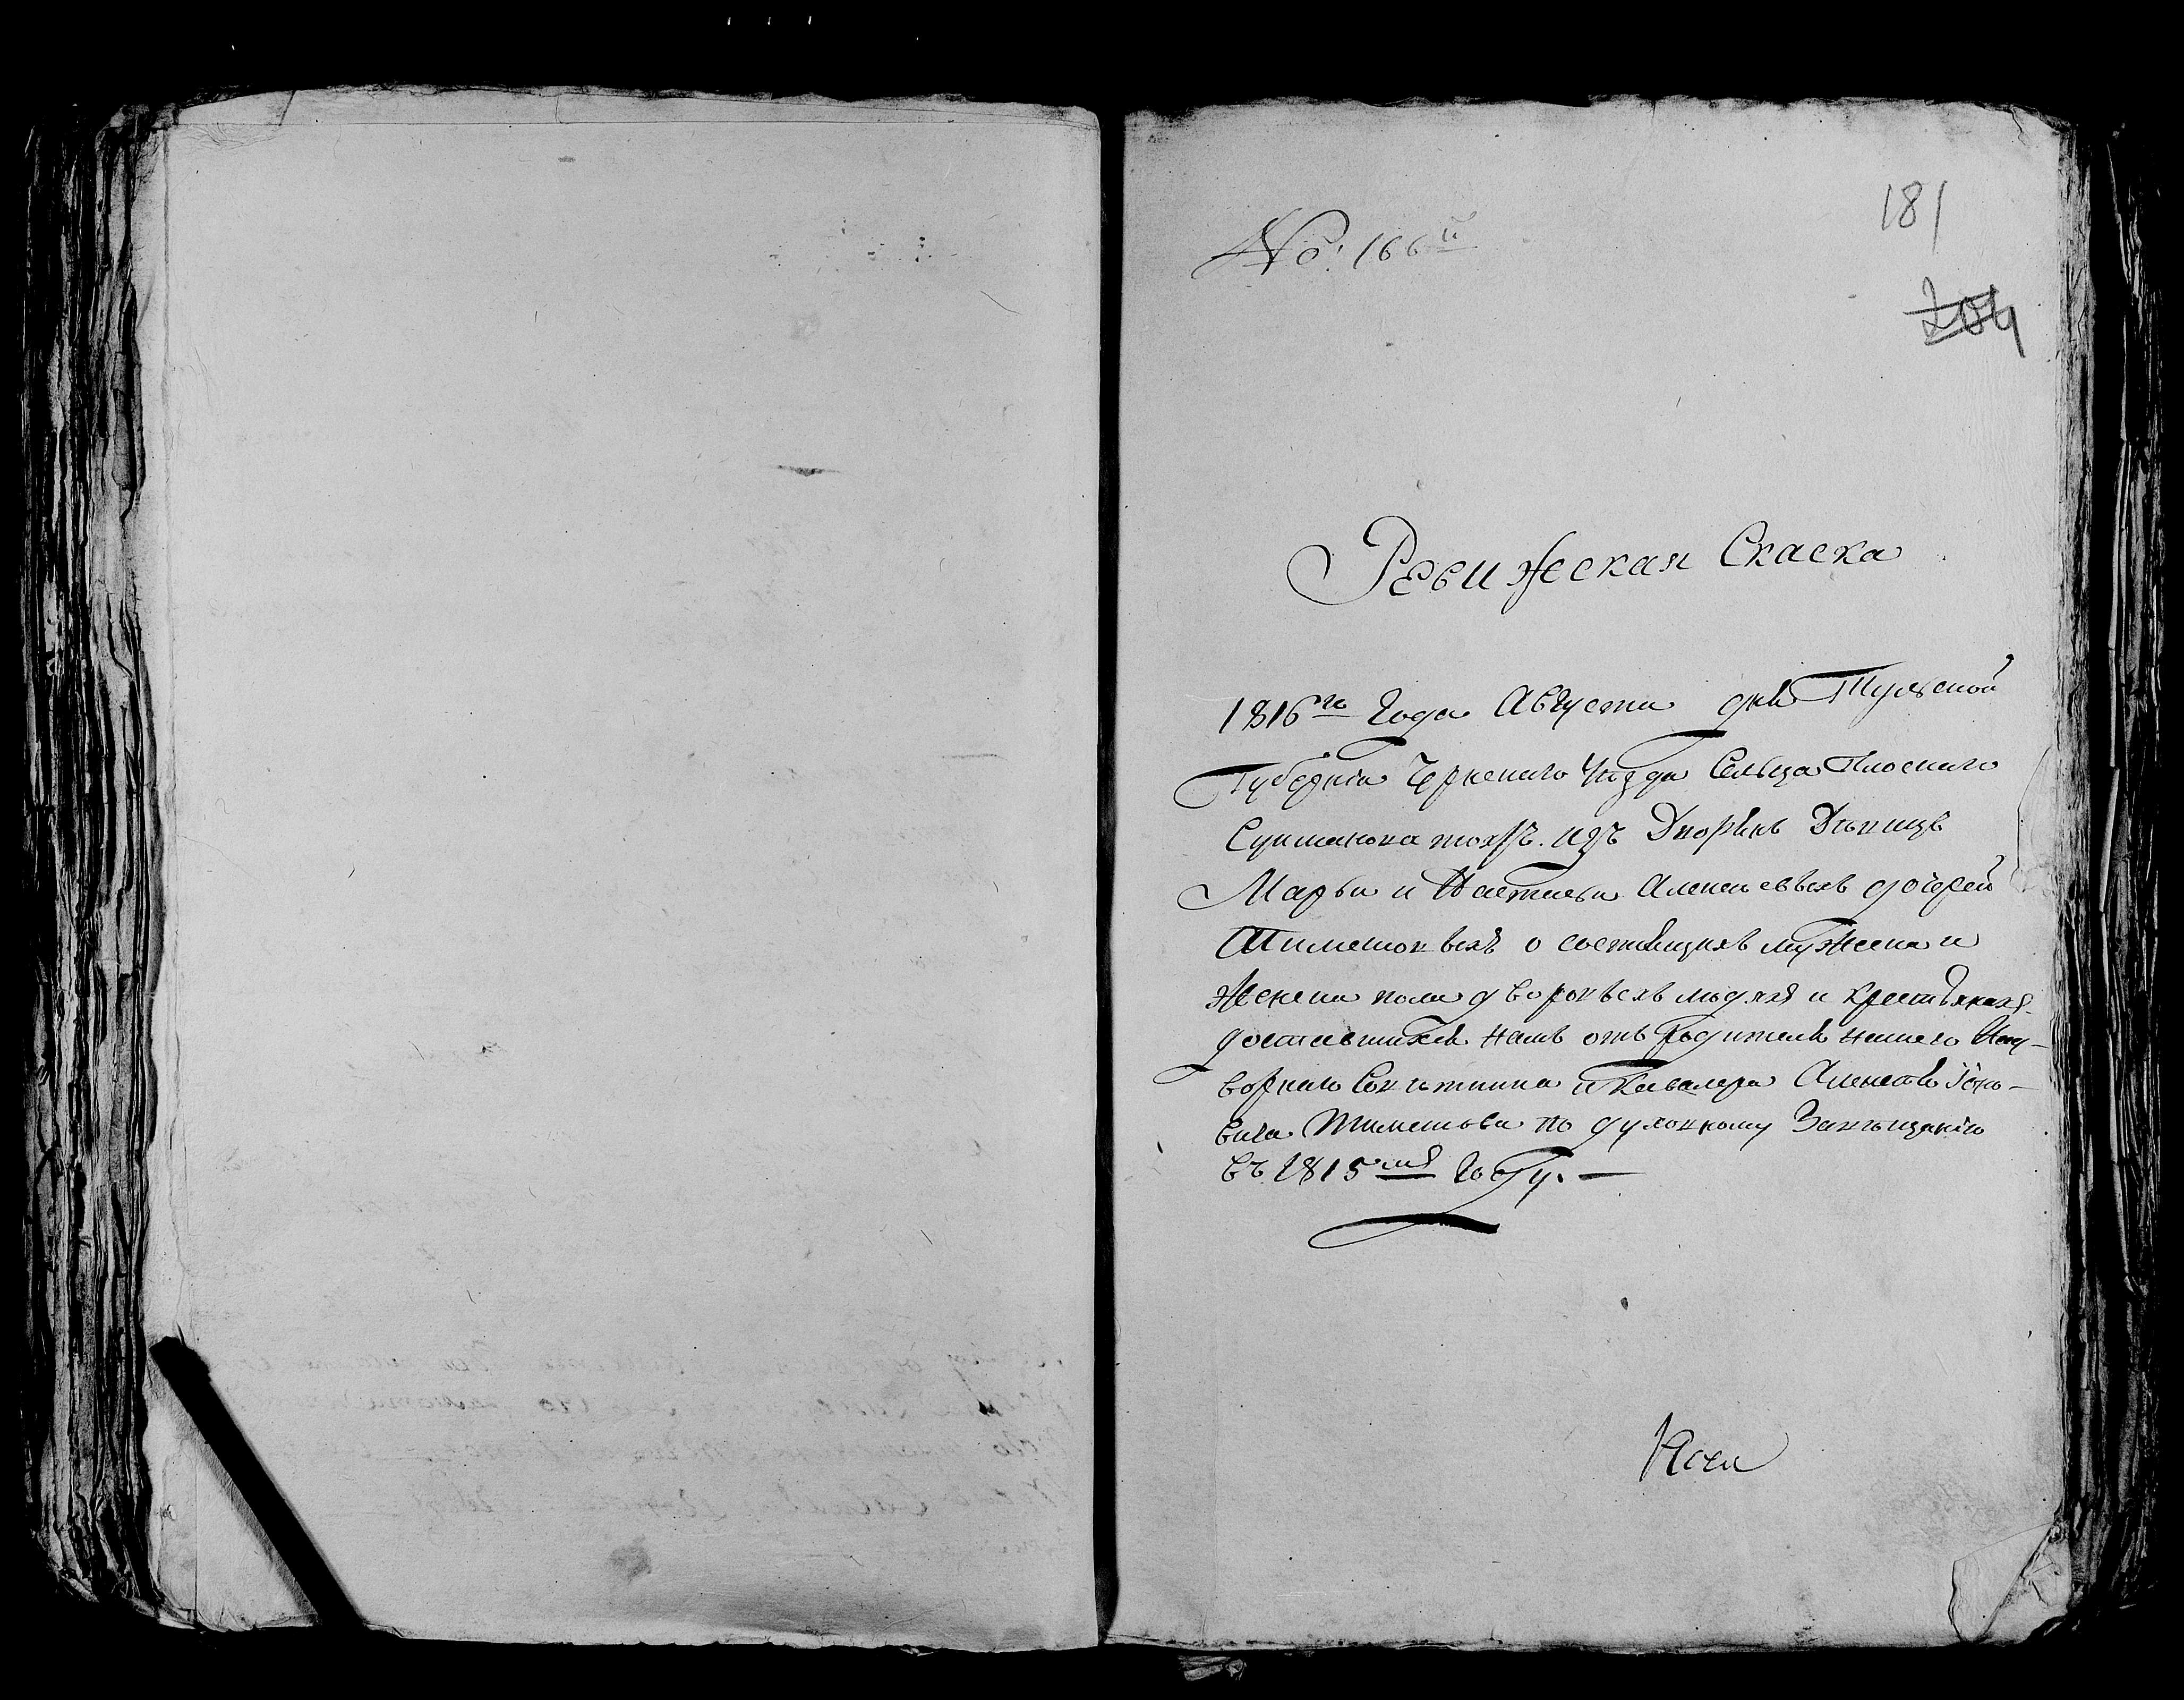 No: 166й
181
204
Ревижская Скаска
1816го Года Августа дня Тульской
Губернiи Чернскаго Уезда Сельца Плоскаго
тожъ. изъ Дворянъ Девицъ
Марьи и Настасьи Алексеевыхъ дочерей
Тиметовыхъ о состоящихъ мужеска и
женска пола дворовыхъ людяхъ и крестьянахъ
доставшихся намъ отъ родителя нашего Над-
ворнаго Советника и Кавалера Алексея
вича Тиметова по духовному Завещанiю
въ 1815мъ Году. —